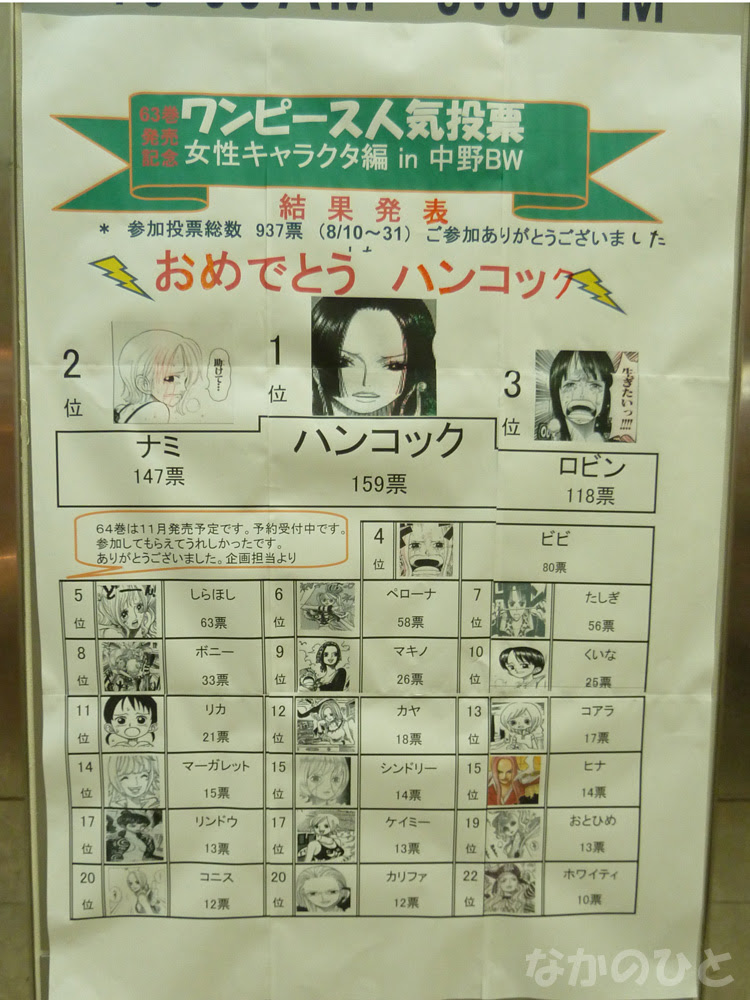 63巻
発売
記念
ワンピース人気投票
女性キャラクタ編 in 中野BW
結果発表
* 参加投票総数 937票 (8/10～31) ご参加ありがとうございました
おめでとう ハンコック
2
位
助けて…
1
位
3
位
生ぎたいっ!!!!
ナミ
147票
ハンコック
159票
ロビン
118票
64巻は11月発売予定です。予約受付中です。
参加してもらえてうれしかったです。
ありがとうございました。企画担当より
4
位
ビビ
80票
5
位
どーん
しらほし
63票
6
位
ペローナ
58票
7
位
たしぎ
56票
8
位
ボニー
33票
9
位
マキノ
26票
10
位
くいな
25票
11
位
リカ
21票
12
位
カヤ
18票
13
位
コアラ
17票
14
位
マーガレット
15票
15
位
シンドリー
14票
15
位
ヒナ
14票
17
位
リンドウ
13票
17
位
ケイミー
13票
19
位
おとひめ
13票
20
位
コニス
12票
20
位
カリファ
12票
22
位
ホワイティ
10票
なかのひと